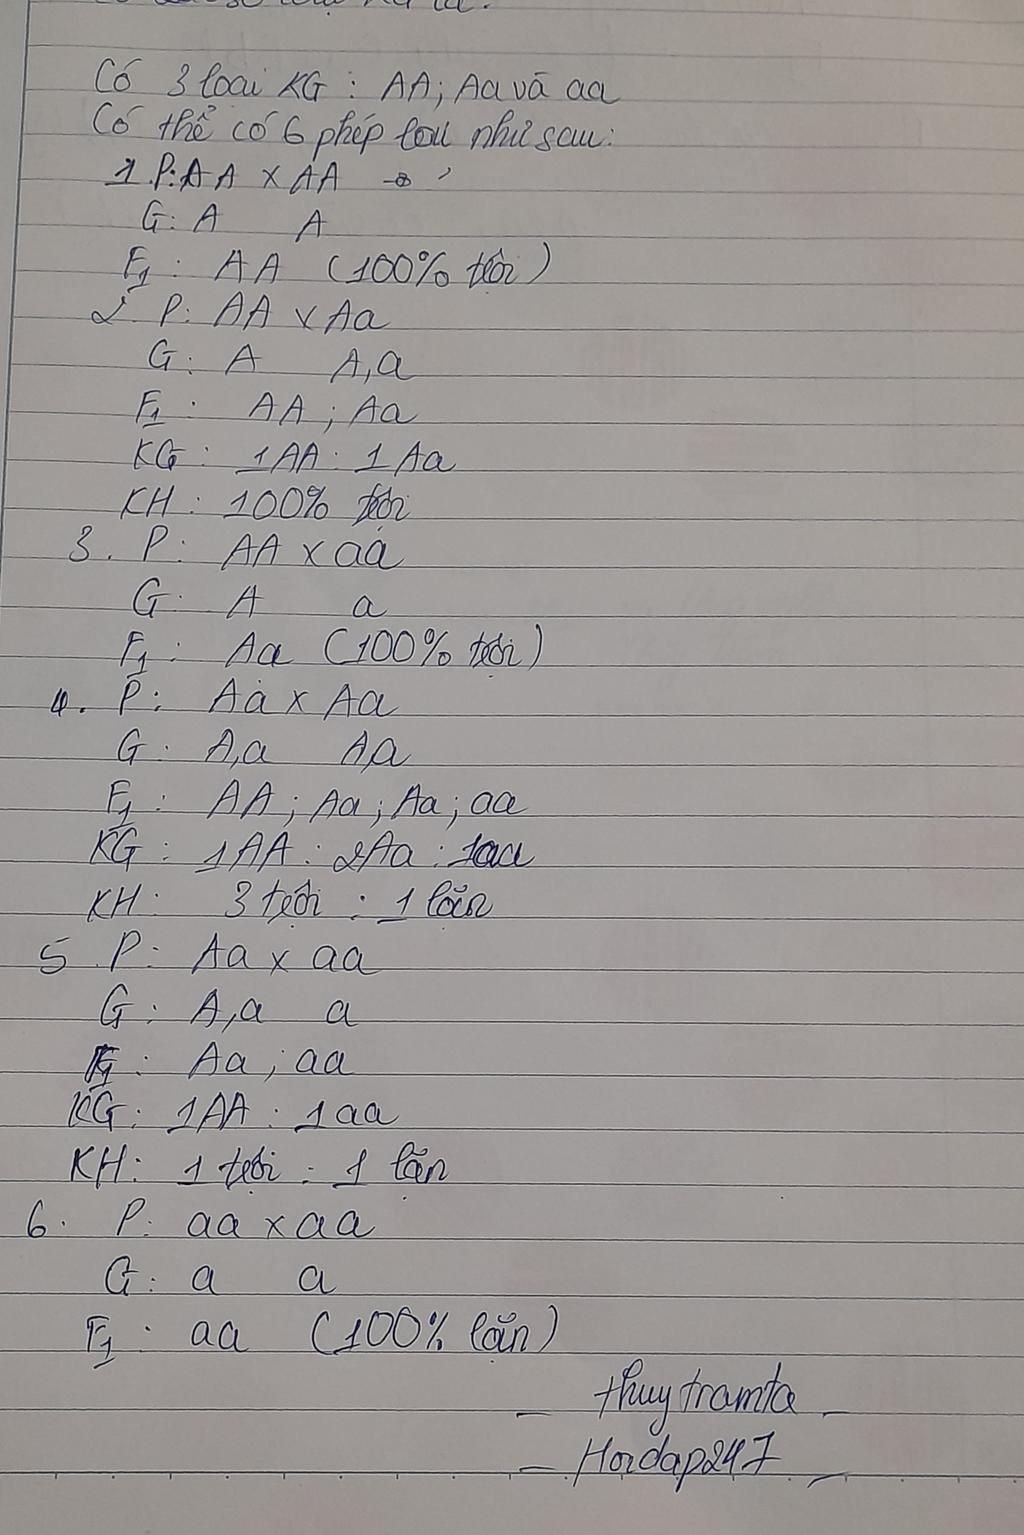 Có 3 loại KG : AA; Aa và aa
Có thể có 6 phép lai như sau:
1 P: AA x AA
G: A A
F1 : AA (100% trội)
2 P: AA x Aa
G: A A,a
F1 : AA ; Aa
KG : 1AA : 1Aa
KH : 100% trội
3. P: AA x aa
G: A a
F1 : Aa (100% trội)
4. P: Aa x Aa
G: A,a A,a
F1 : AA ; Aa ; Aa ; aa
KG : 1AA : 2Aa : 1aa
KH: 3 trội : 1 lặn
5 P: Aa x aa
G: A,a a
F1 : Aa ; aa
KG: 1AA : 1aa
KH: 1 trội : 1 lặn
6. P: aa x aa
G: a a
F1 : aa (100% lặn)
_ thuytramta _
_ Hoidap247 _